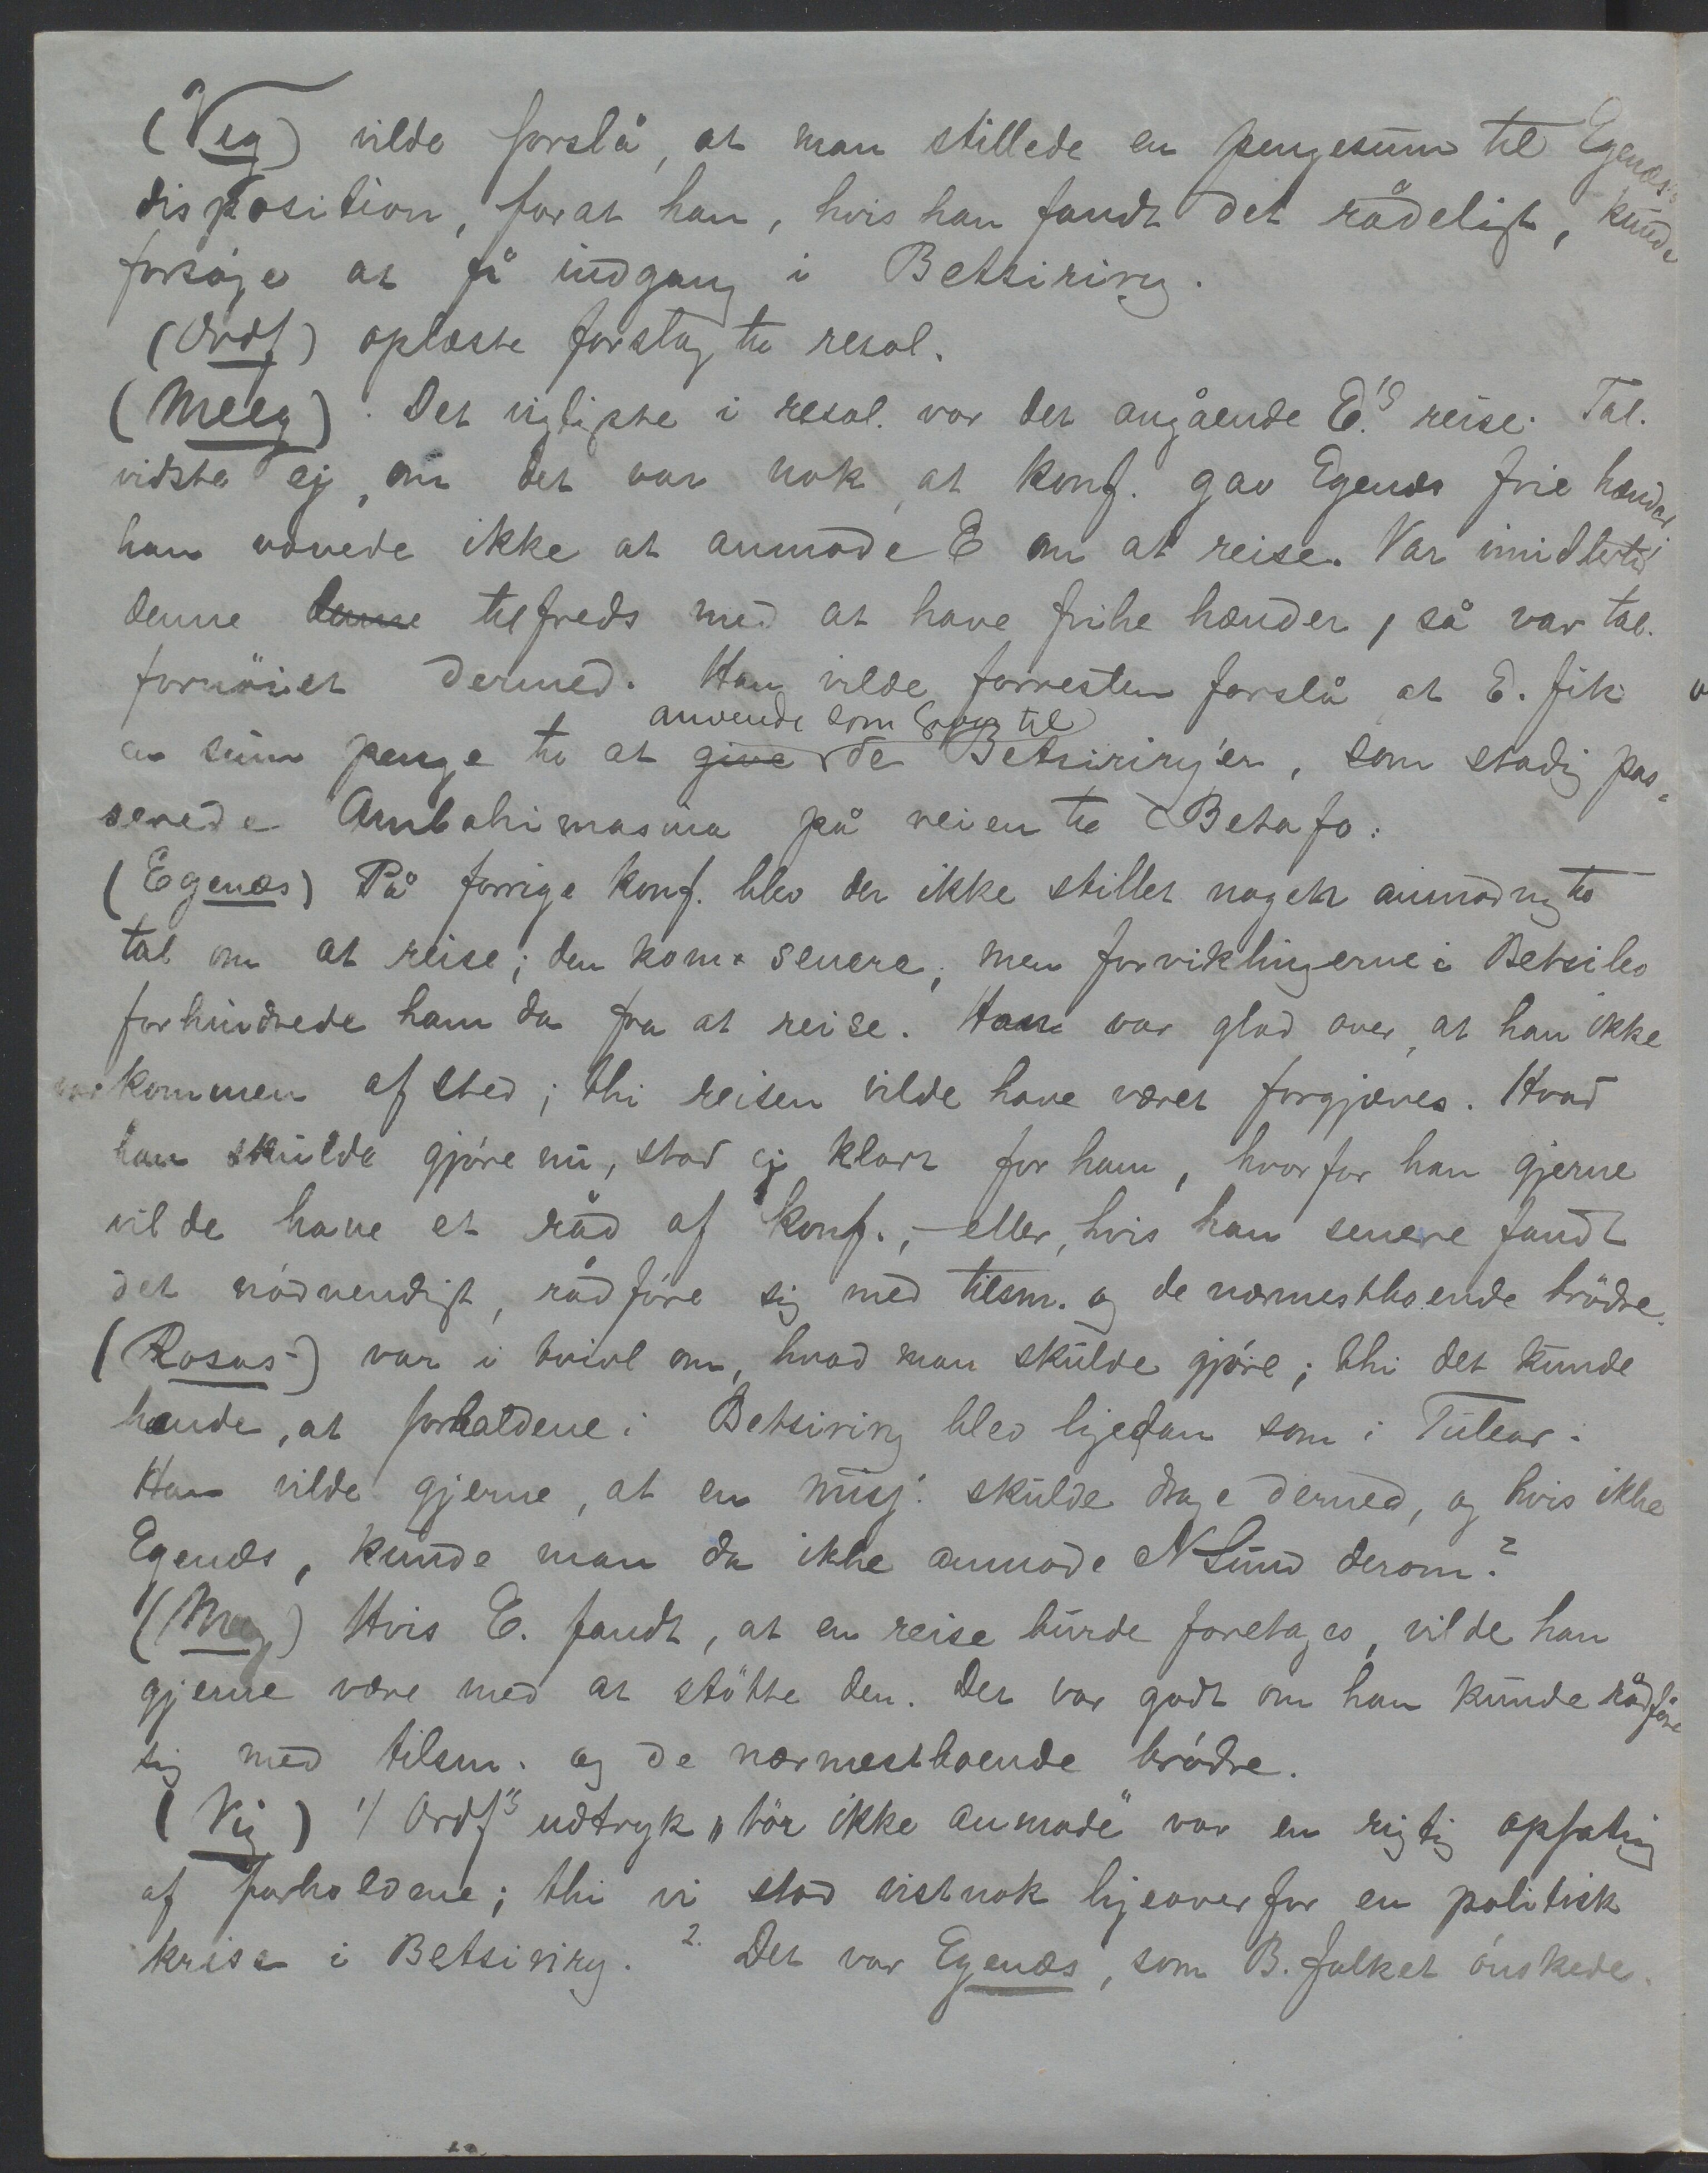 (Vig) vilde forslå, at man stillede en pengesum til Egenæs's
disposition, forat han, hvis han fandt det rådeligt, kunde
forsøge at få indgang i Betsiriry.
(Ordf) oplæste forslag til resol.
(Meeg). Det vigtigste i resol. var det angående E's reise. Tal.
vidste ej, om det var nok, at konf. gav Egenæs frie hænder
han vovede ikke at anmode E om at reise. Var imidlertid
denne denne tilfreds med at have frihe hænder, så var tal.
fornöiet dermed. Han vilde forresten forslå at E. fik
anvende som gaver til
en sum penge til at give de Betsiriry'er, som stadig pas-
serede Ambohimasina på veien til Betafo.
(Egenæs) På forrige konf. blev der ikke stillet nogen anmodng til
tal om at reise; den kom senere, men forviklingerne i Betsileo
forhindrede ham da fra at reise. Han var glad over, at han ikke
var kommen afsted; thi reisen vilde have været forgjæves. Hvad
han skulde gjøre nu, stod ej klart for ham, hvorfor han gjerne
vilde have et råd af konf., – eller, hvis han senere fandt
det nödvendigt, rådføre sig med tilsm. og de nærmestboende brödre.
(Rosaas) var i tvivl om, hvad man skulde gjøre; thi det kunde
hænde, at forholdene i Betsiriry blev ligedan som i Tulear.
Han vilde gjerne, at en misj. skulde drage derned, og hvis ikke
Egenæs, kunde man da ikke anmode N Lund derom?
(Meeg) Hvis E. fandt, at en reise burde foretages, vilde han
gjerne være med at stötte den. Det var godt om han kunde rådføre
sig med tilsm. og de nærmestboende brødre.
(Vig) 1/ Ordf's udtryk "tör ikke anmode" var en rigtig opfatnig
af forholdene; thi vi stod vistnok ligeoverfor en politisk
krise i Betsiriry. 2. Det var Egenæs, som B. folket ønskede.